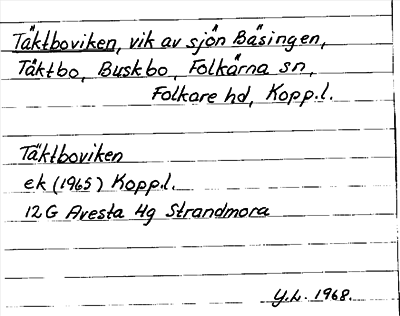 Täktboviken, vik av sjön Bäsingen,
Täktbo, Buskbo, Folkärna sn,
Folkare hd, Kopp.l.
Täktboviken
ek (1965) Kopp.l.
12 G Avesta 4g Strandmora
Y.L. 1968.